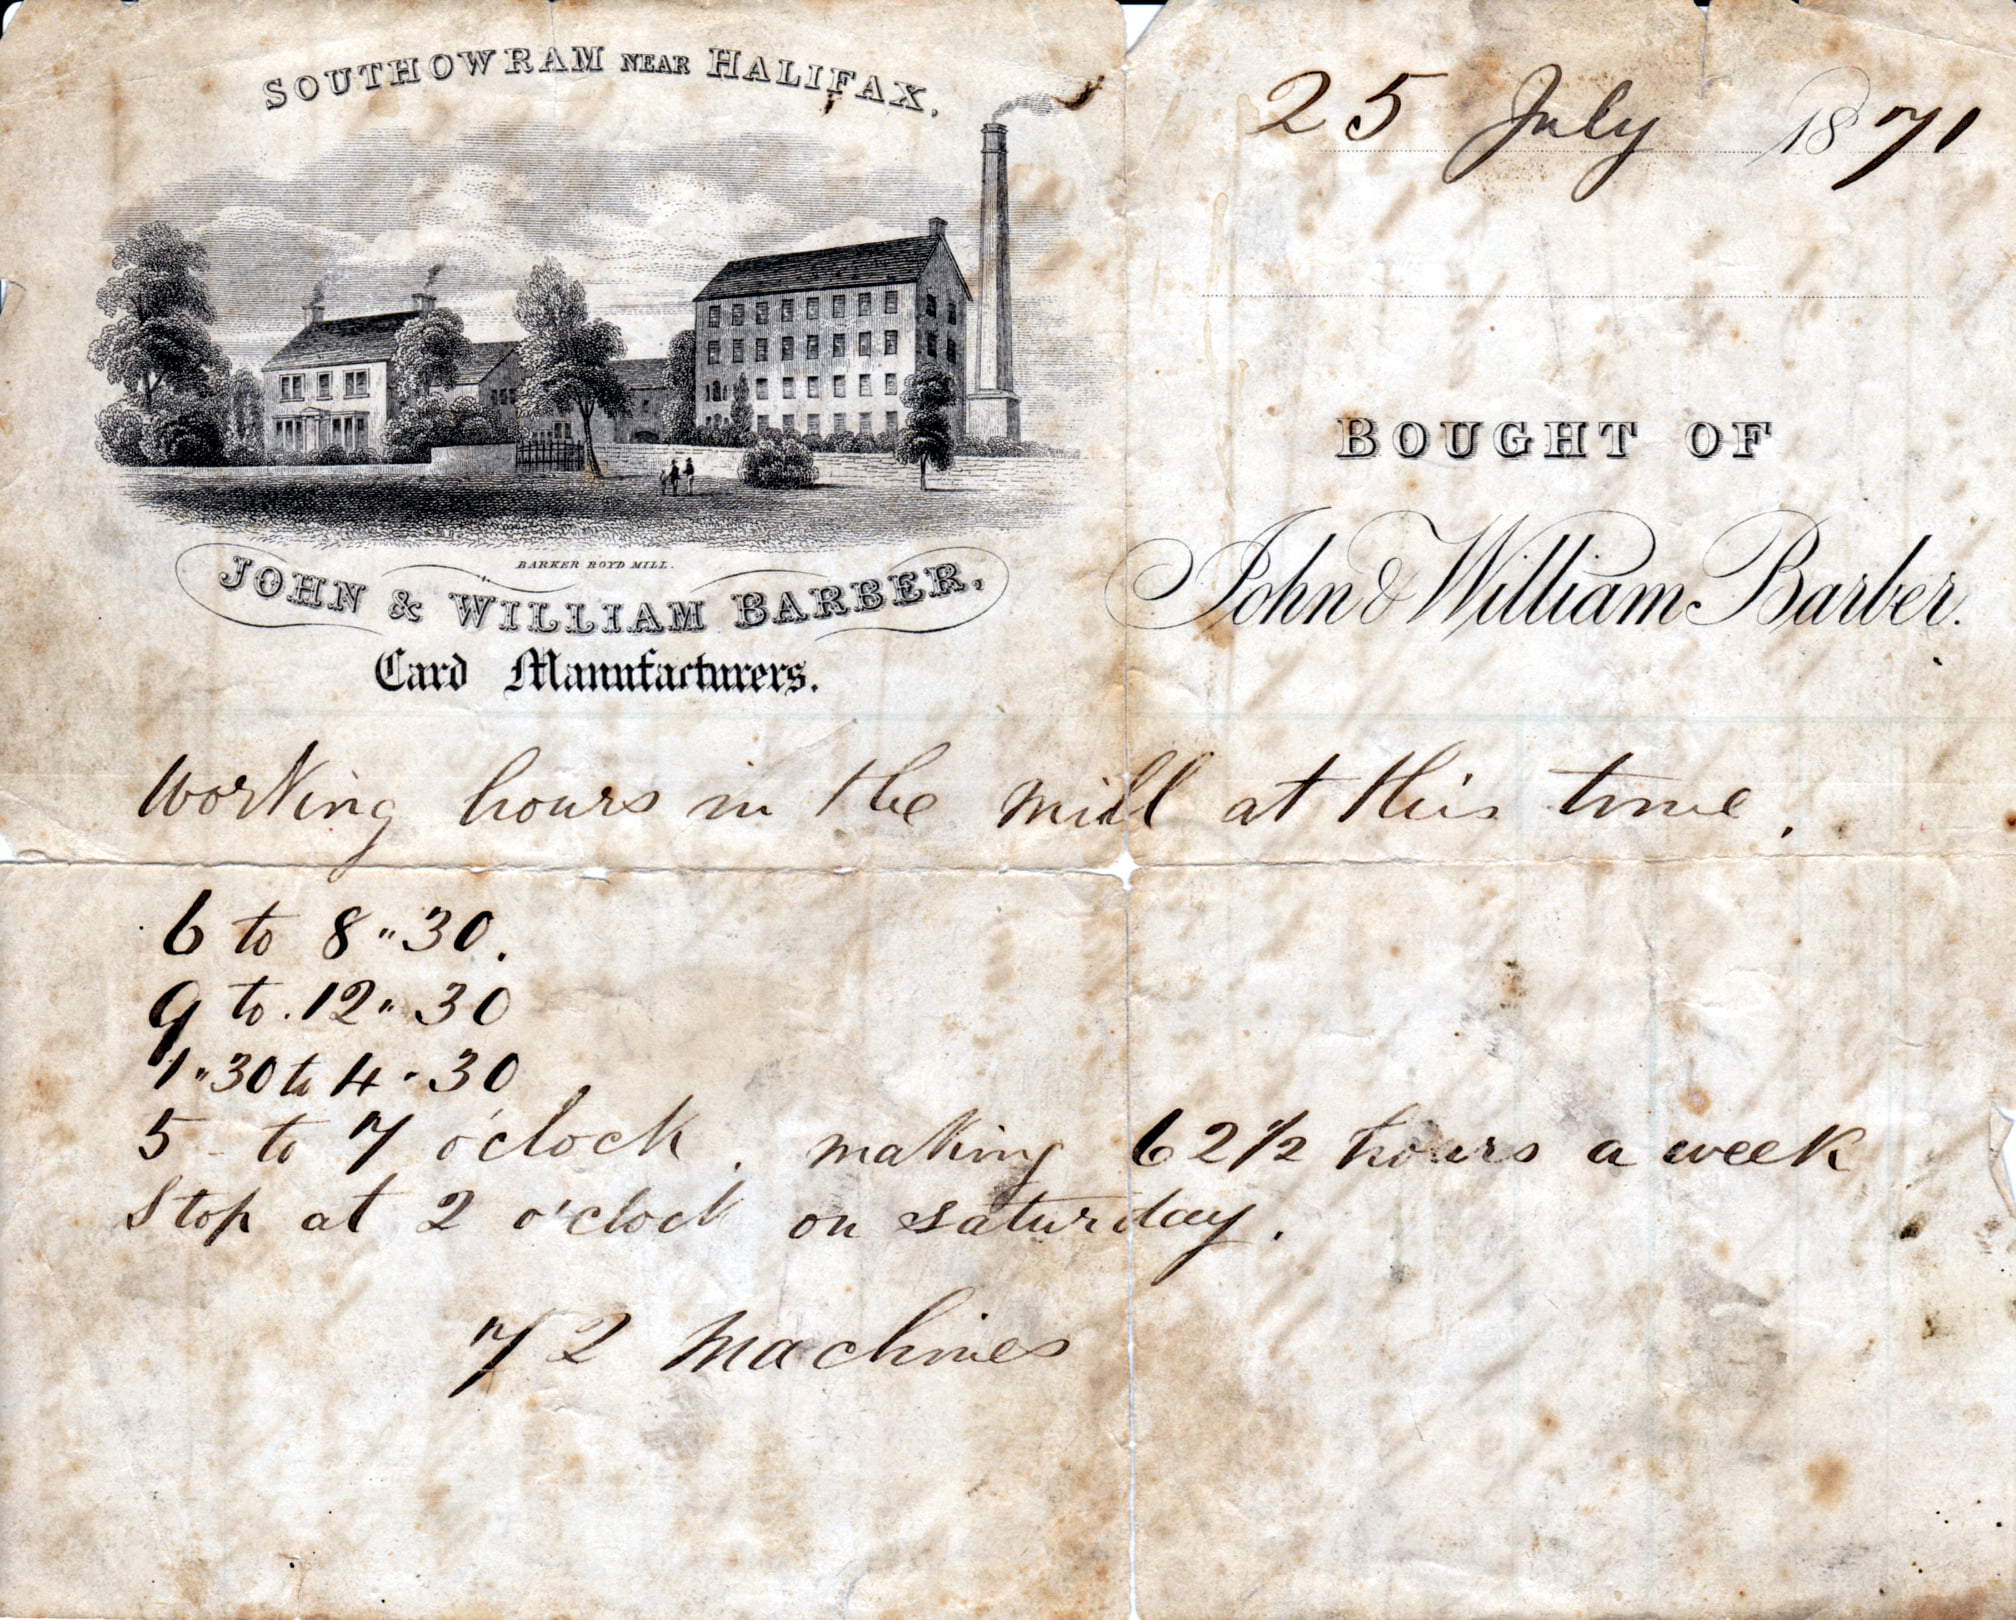 SOUTHOWRAM NEAR HALIFAX,
25 July 1871
BOUGHT OF
BARKER ROYD MILL.
JOHN & WILLIAM BARBER,
John & William Barber.
Card Manufacturers.
Working hours in the mill at this time.
6 to 8"30.
9 to. 12"30
1"30 to 4-30
5 - to 7 o'clock. making 62 1/2 hours a week
Stop at 2 o'clock on saturday.
72 Machines